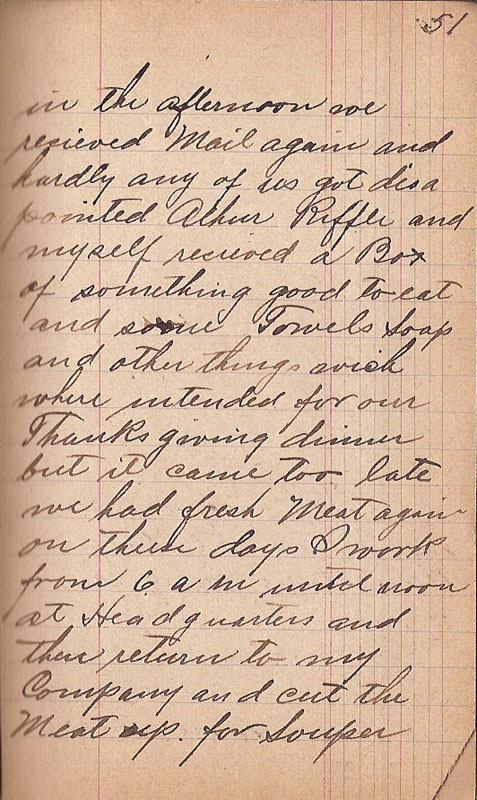 51
in the afternoon we
recieved Mail again and
hardly any of us got disa
pointed Athur Riffle and
myself recieved a Box
of something good to eat
and some Towels Soap
and other things wich
where intended for our
Thanks giving dinner
but it came too late
we had fresh Meat again
on these days I work
from 6 a m until noon
at Headquarters and
then return to my
Company and cut the
Meat up. for Souper